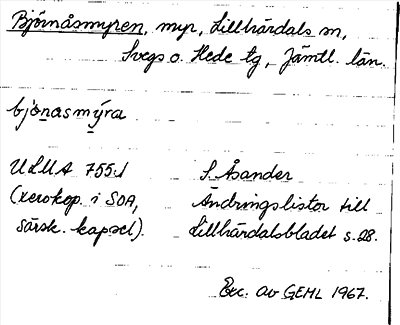 Björnåsmyren, myr, Lillhärdals sn,
Svegs o. Hede tg, Jämtl. län.
bjo̱nasmy̱ra
ULMA 755:1 S. Åsander
(xerokop. i SOA, Ändringslistor till
särsk. kapsel). Lillhärdalsbladet s. 28.
Exc. av GEHL 1967.